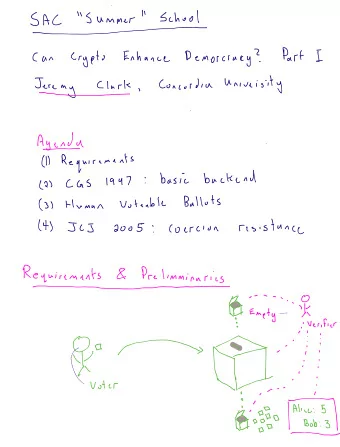 SAC "Summer" School
Can Crypto Enhance Democracy? Part I
Jeremy Clark, Concordia University
Agenda
(1) Requirements
(2) CGS 1997: basic backend
(3) Human Voteable Ballots
(4) JCJ 2005: coercion resistance
Requirements & Preliminaries
Empty
Verifier
Voter
Alice: 5
Bob: 3